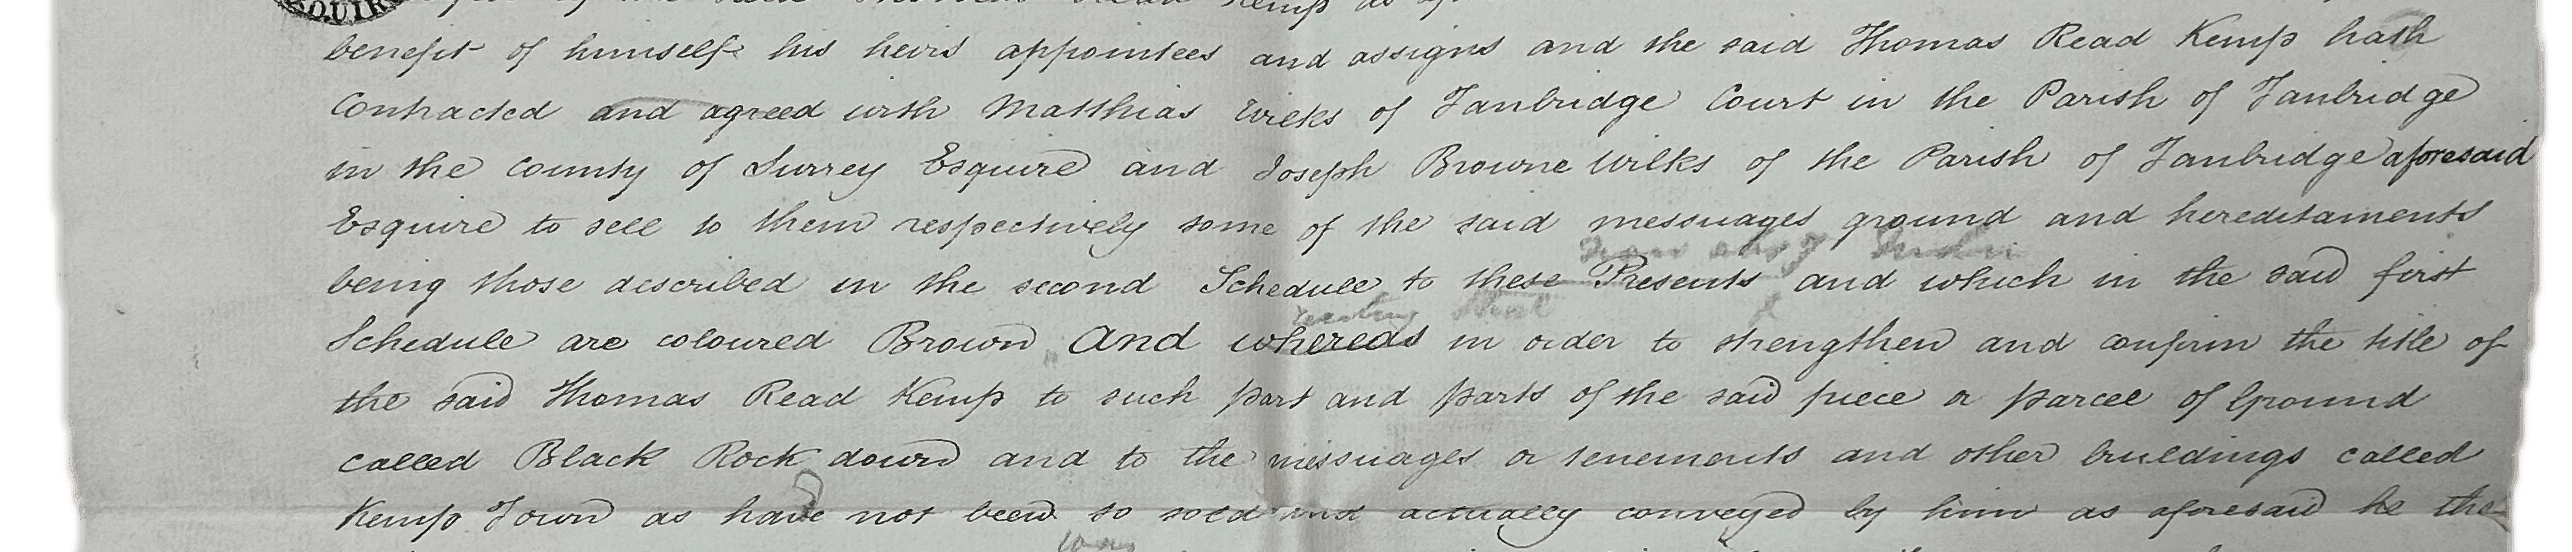 OQUIR
Kemp as
benefit of himself his heirs appointees and assigns and the said Thomas Read Kemp hath
Contracted and agreed with Matthias Wilks of Tanbridge Court in the Parish of Tanbridge
in the County of Surrey Esquire and Joseph Browne Wilks of the Parish of Tanbridge aforesaid
Esquire to sell to them respectively some of the said messuages ground and hereditaments
being those described in the second Schedule to these Presents and which in the said first
Schedule are coloured Brown And whereas in order to strengthen and confirm the title of
the said Thomas Read Kemp to such part and parts of the said piece or parcel of Ground
called Black Rock down and to the messuages or tenements and other buildings called
Kemp Town as have not been so sold and actually conveyed by him as aforesaid he the